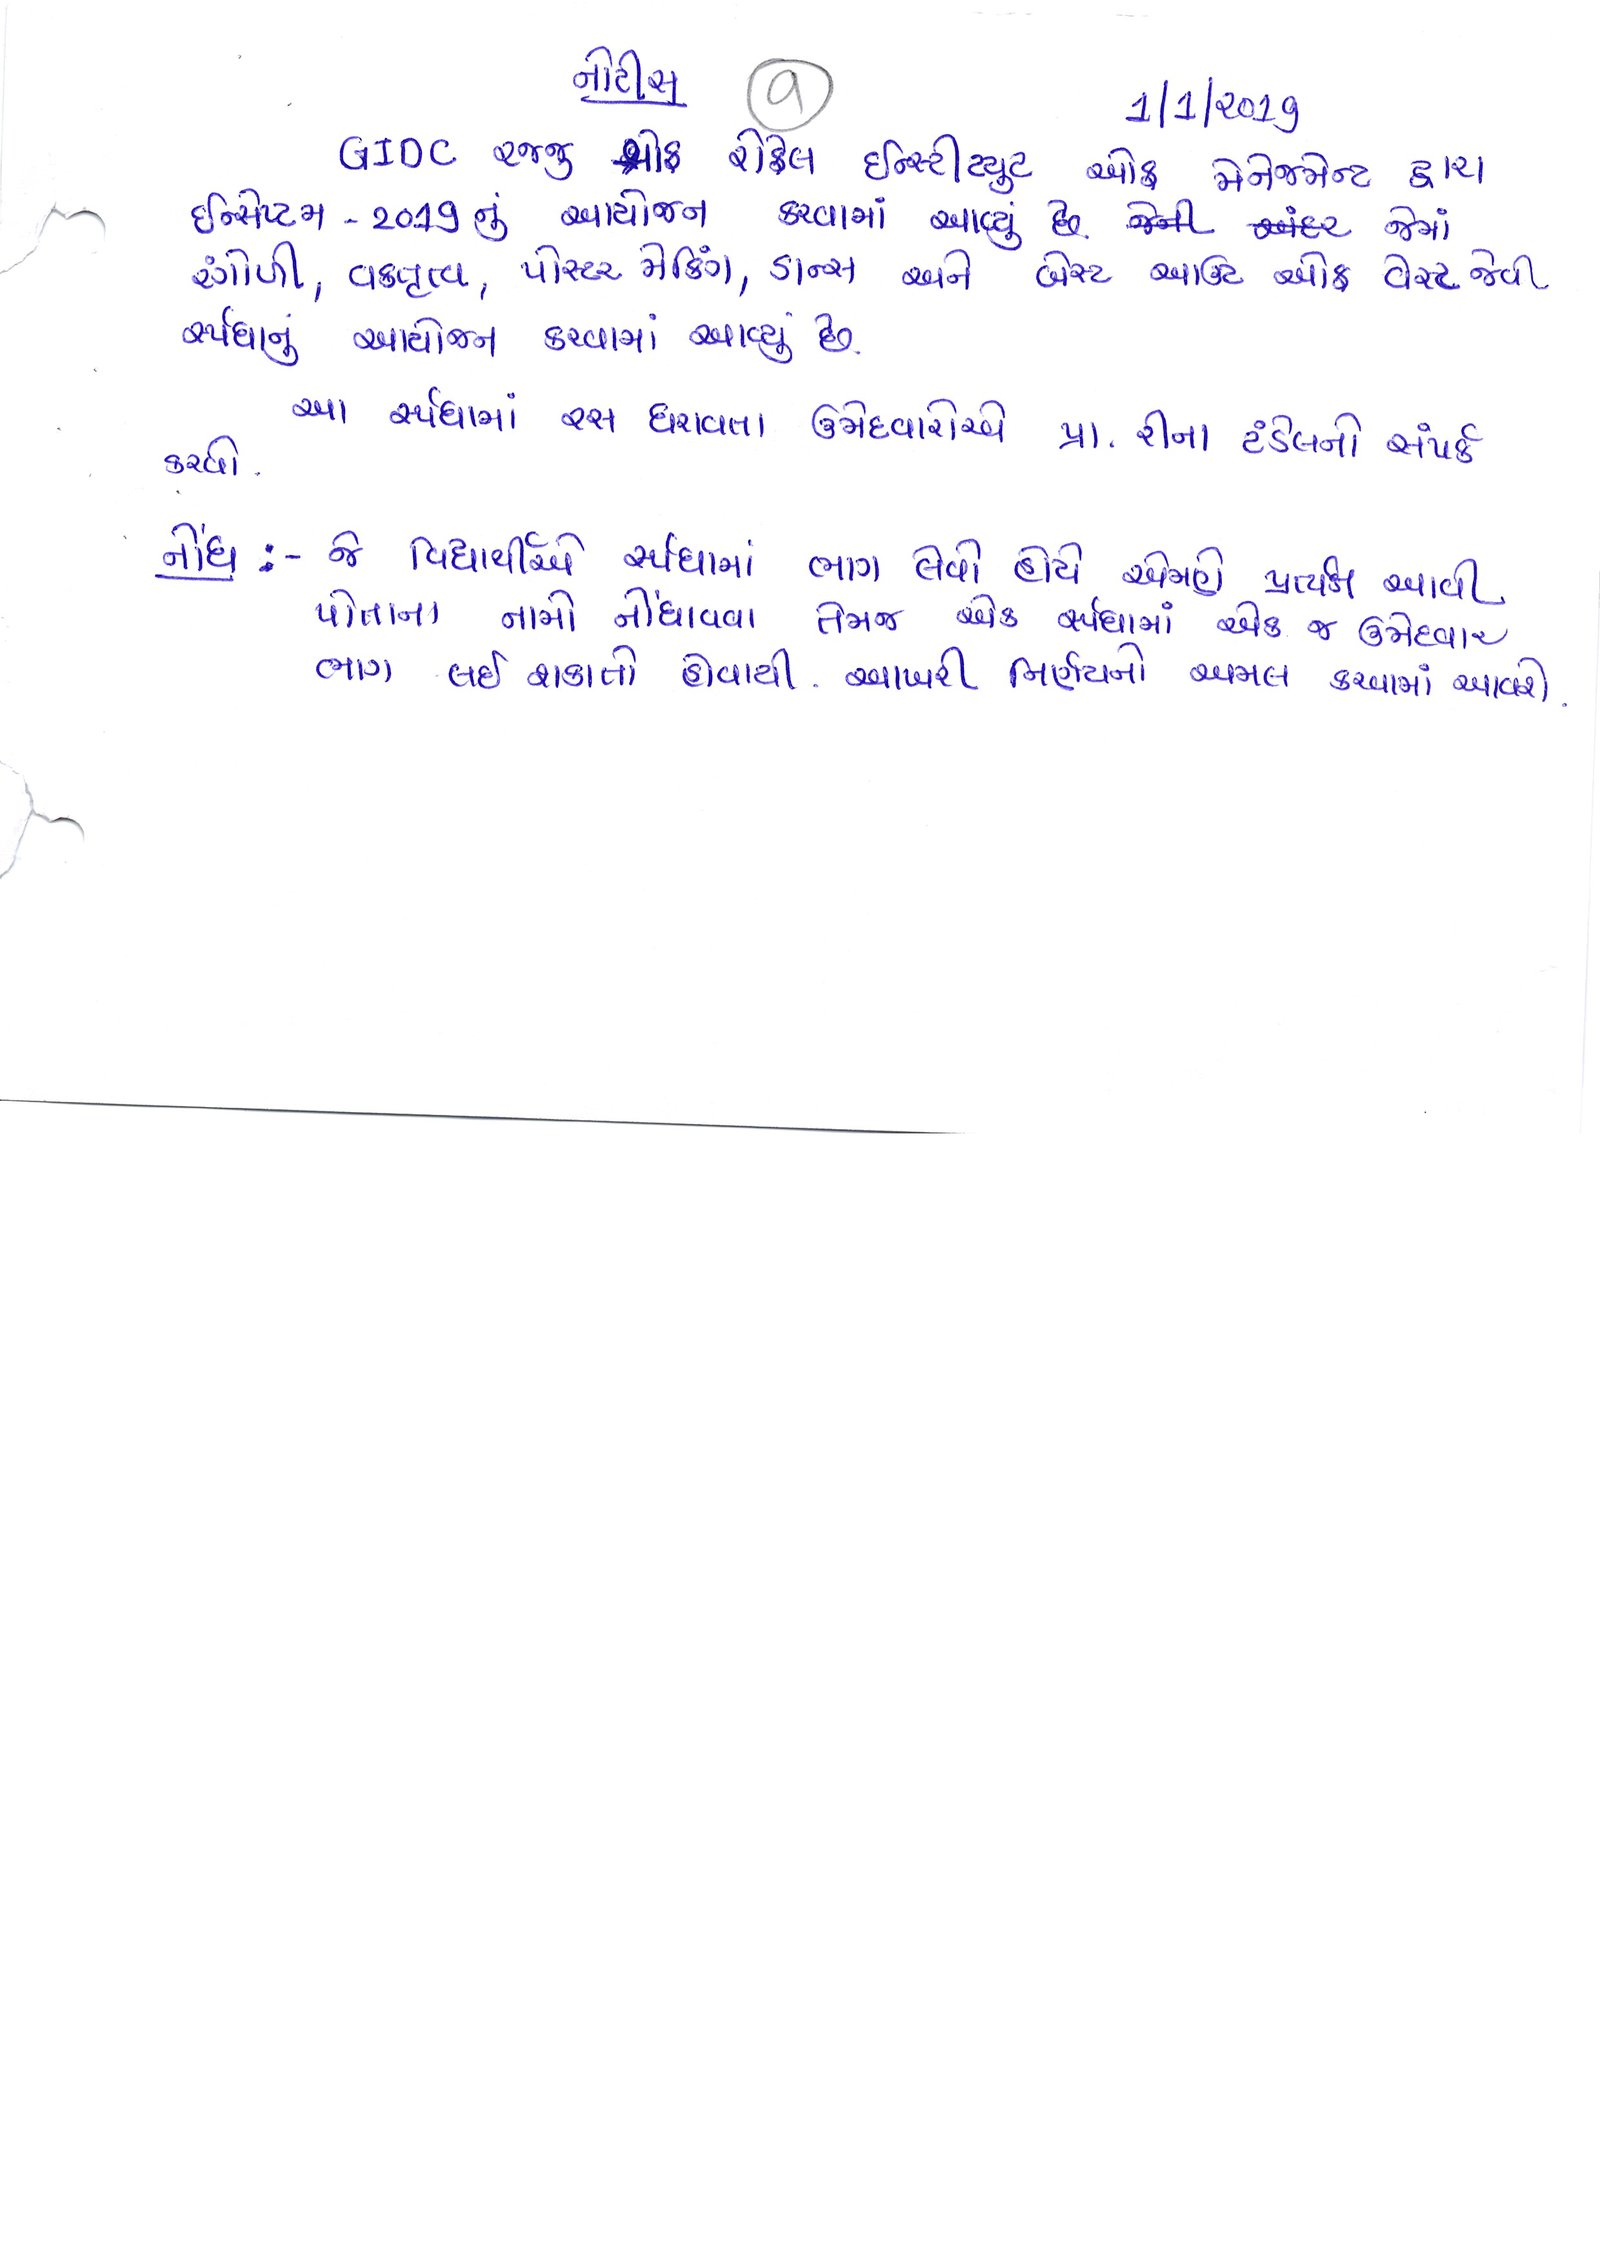 નોટીસ ૧ 1/1/2019
GIDC રજજુ શ્રોફ રોફેલ ઈન્સ્ટીટ્યુટ ઓફ મેનેજમેન્ટ દ્વારા
ઈન્સેપ્ટમ - 2019 નું આયોજન કરવામાં આવ્યું છે. જેની અંદર જેમાં
રંગોળી, વકતૃત્વ, પોસ્ટર મેકિંગ, ડાન્સ અને બેસ્ટ આઉટ ઓફ વેસ્ટ જેવી
ર્સ્પધાનું આયોજન કરવામાં આવ્યું છે.
આ ર્સ્પધામાં રસ ધરાવતા ઉમેદવારોએ પ્રા. રીના ટંડેલનો સંપર્ક
કરવો.
નોંધ :- જે વિદ્યાર્થીએ ર્સ્પધામાં ભાગ લેવો હોય એમણે પ્રત્યક્ષ આવી
પોતાના નામો નોંધાવવા તેમજ એક ર્સ્પધામાં એક જ ઉમેદવાર
ભાગ લઈ શકાતો હોવાથી. આખરી નિર્ણયનો અમલ કરવામાં આવશે.